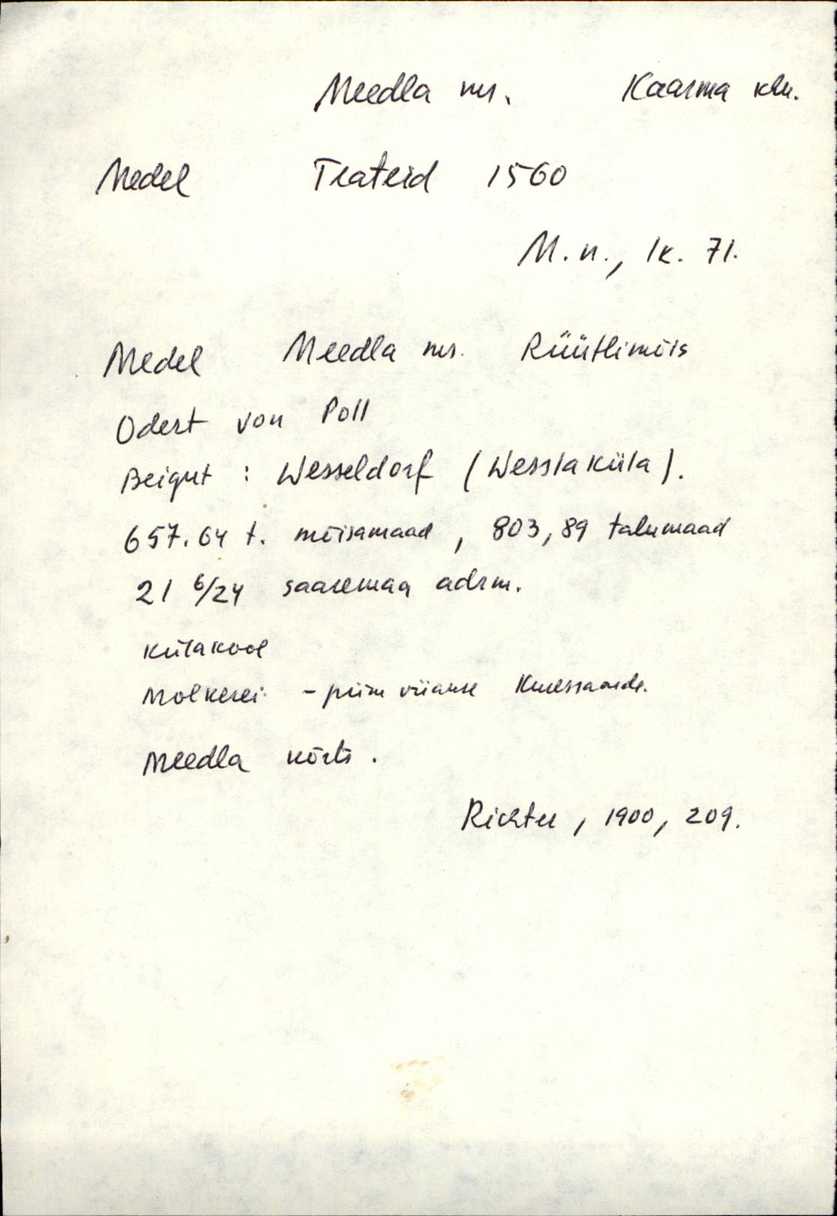 Meedla ms. Kaarma khk.
Medel Teateid 1560
M.n., lk. 71.
Medel Meedla ms. Rüütlimõis
Odert von Poll
Beigut : Wesseldorf (Wesslaküla).
657.64 t. mõisamaad, 803,89 talumaad
21 6/24 saaremaa adrm.
Külakool
Molkerei - piim viiakse Kuressaarde.
Meedla kõrts.
Richter, 1900, 209.